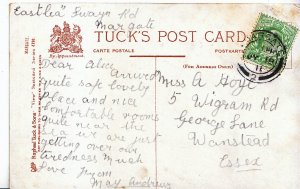 "Eastlea" Swayn Rd
Margate
TUCK'S POST CARD
CARTE POSTALE
POSTKARTE
(For Address Only)
Dear Alice Arrived
quite safe lovely
Place and nice
comfortable rooms
quite near the
sea we are just
getting over our
tiredness much
Love from
May Andrews
Miss A Hoyl
5 Wigram Rd
George Lane
Wanstead
Essex
2